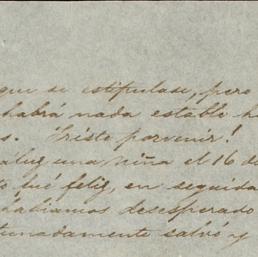 que se estipulase, pero
habrá nada estable h
s. Triste porvenir!
a luz una niña el 16 de
to fué feliz, en seguida
habiamos desesperado
tunadamente salvó y